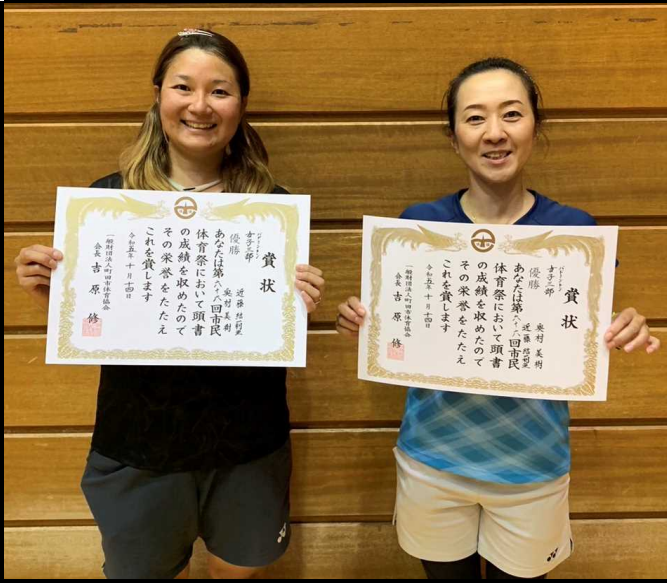 賞状
バドミントン
女子三部
優勝
近藤 結莉菜
奥村 美樹
あなたは第六十八回市民
体育祭において頭書
の成績を収めたので
その栄誉をたたえ
これを賞します
令和五年十月十四日
一般財団法人町田市体育協会
会長 吉原 修
賞状
バドミントン
女子三部
優勝
奥村 美樹
近藤 結莉菜
あなたは第六十八回市民
体育祭において頭書
の成績を収めたので
その栄誉をたたえ
これを賞します
令和五年十月十四日
一般財団法人町田市体育協会
会長 吉原 修